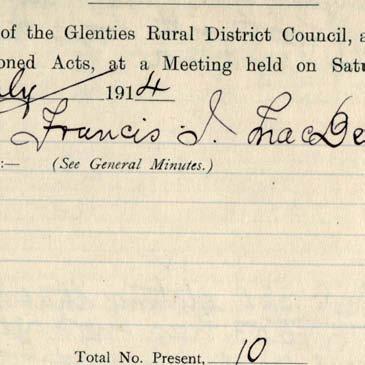 of the Glenties Rural District Council, a
oned Acts, at a Meeting held on Satu
uly 1914
Francis J. MacDe
:— (See General Minutes.)
Total No. Present, 10